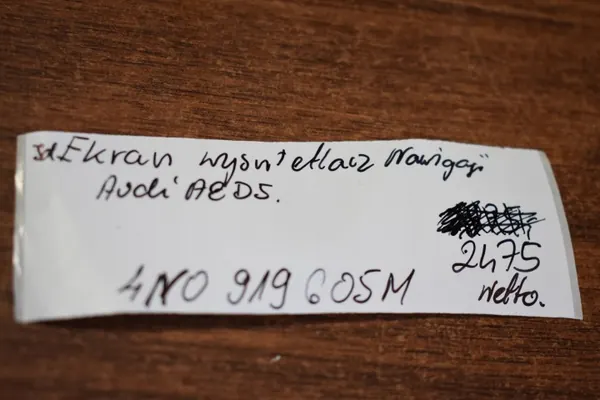 Ekran wyświetlacz Nawigaji
Audi A8 D5.
2475
Netto.
4N0 919 605M